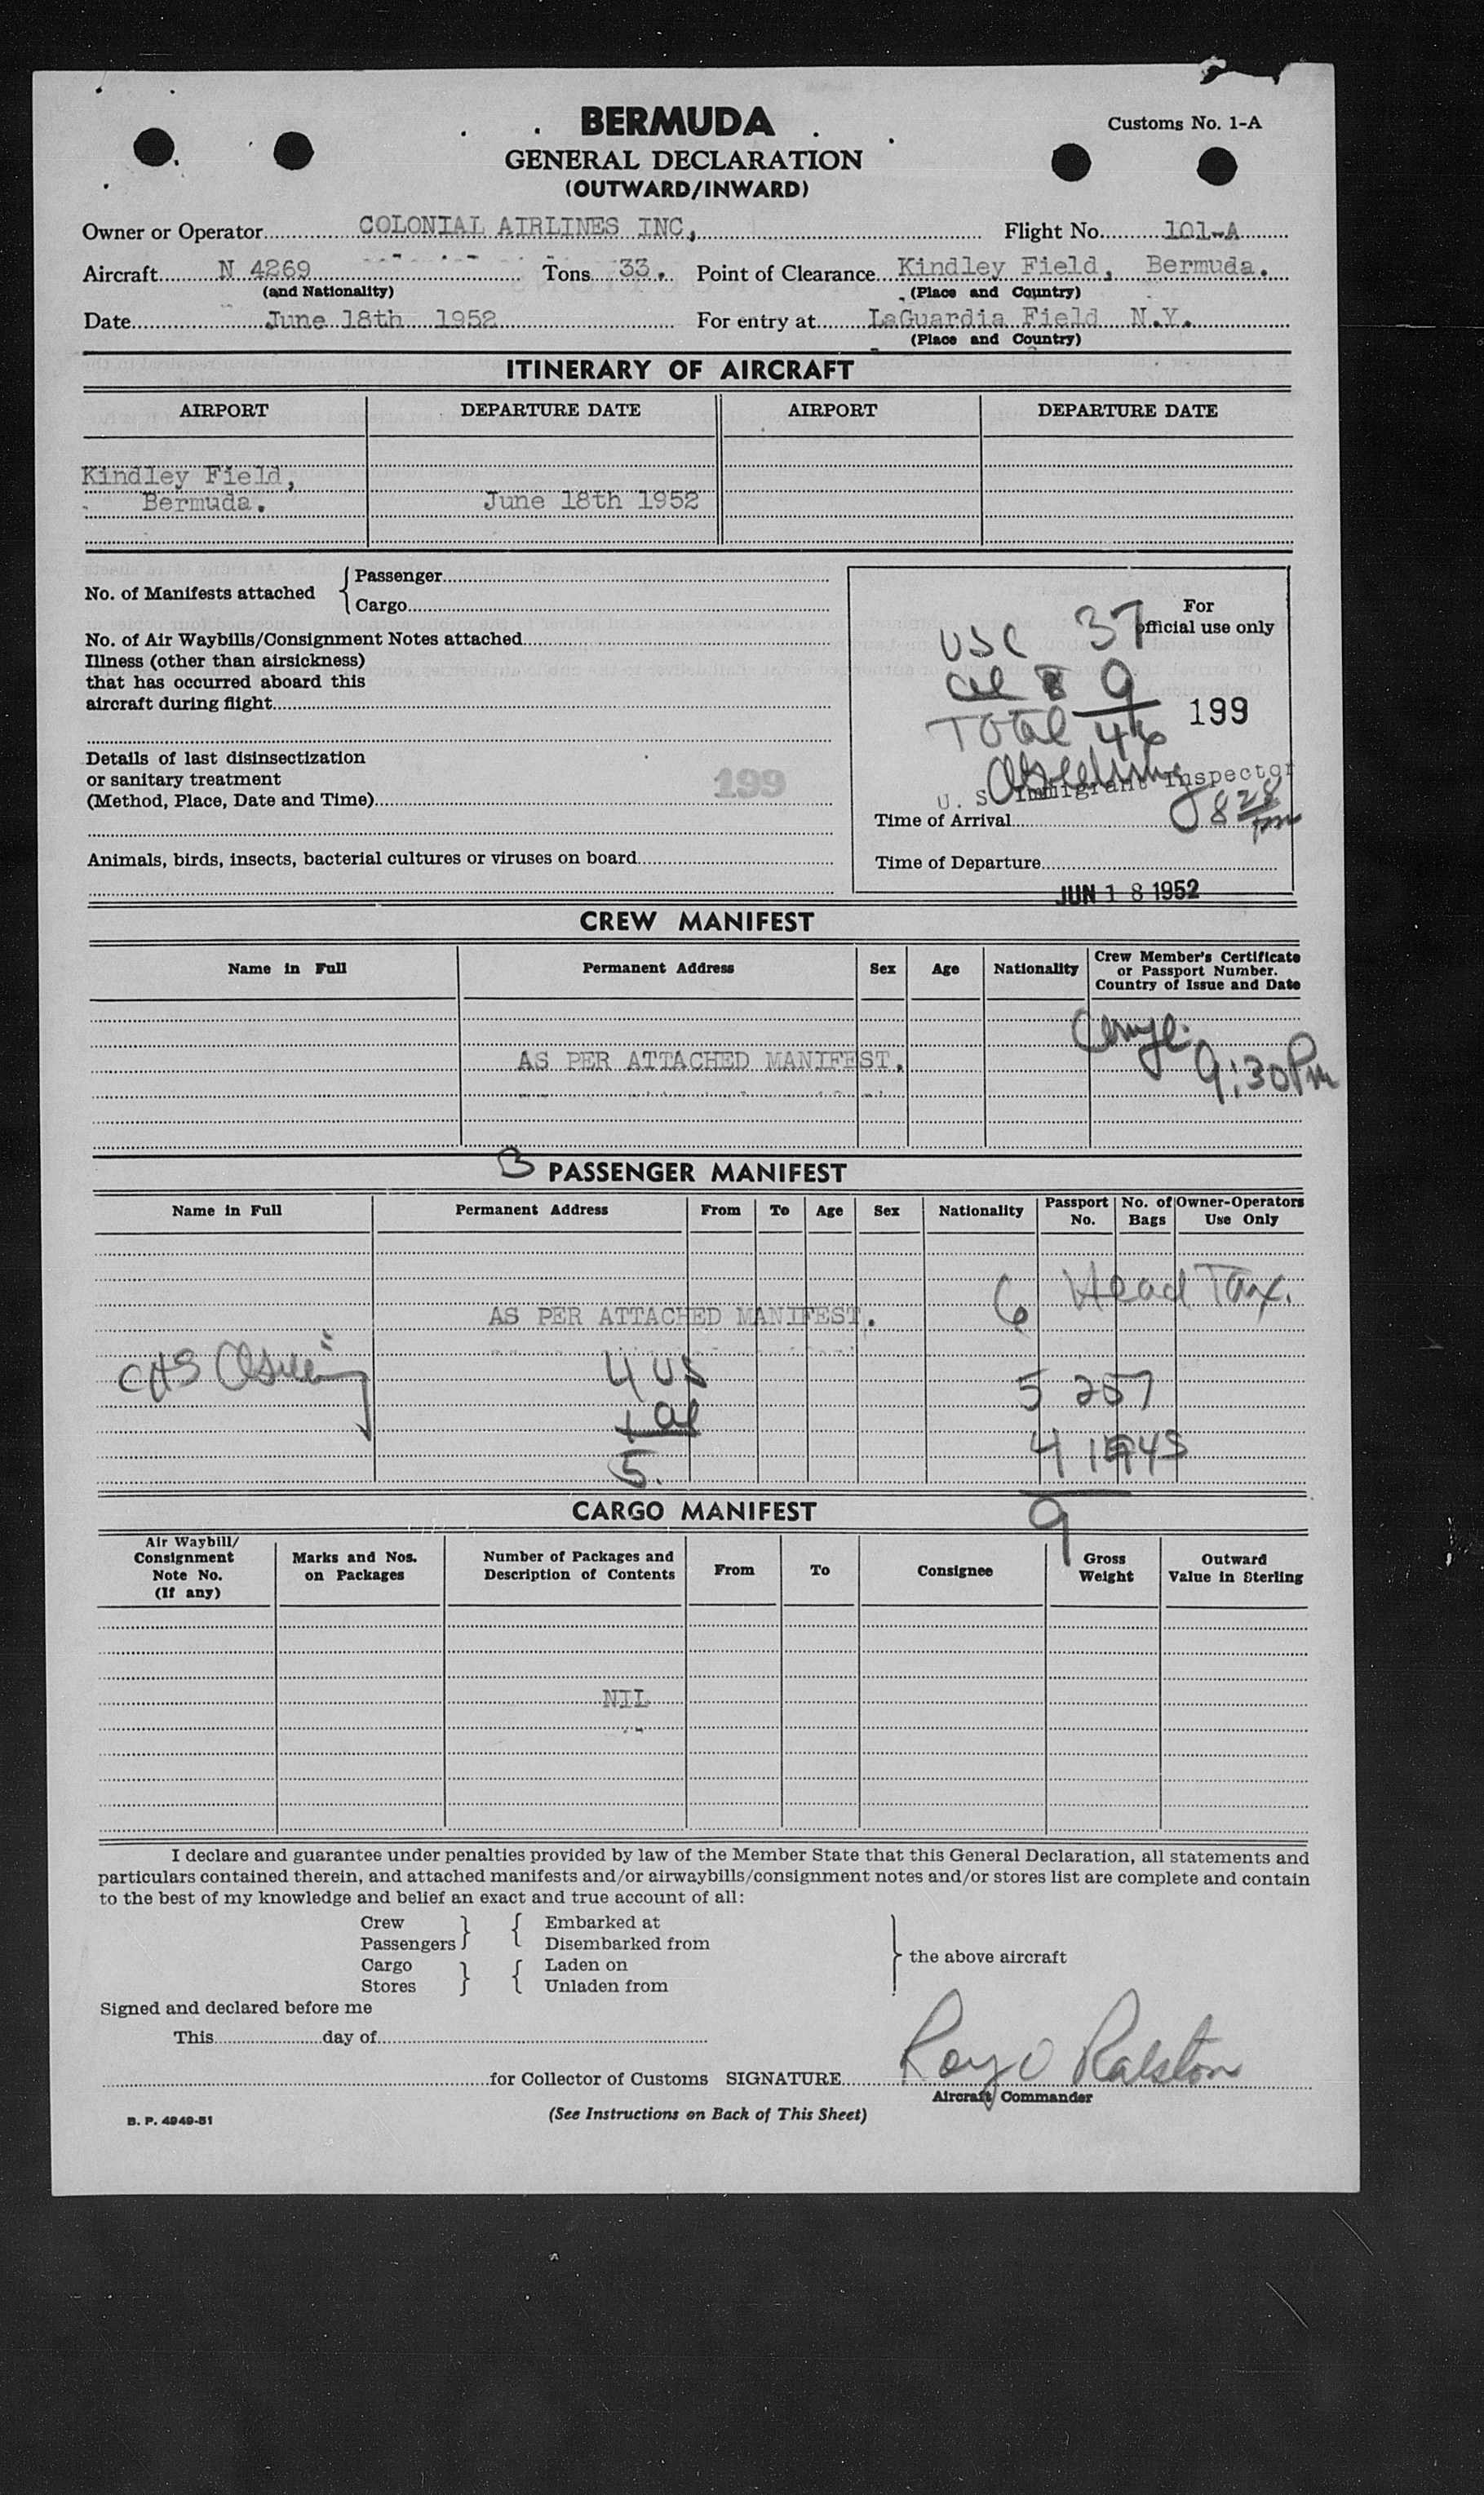 BERMUDA
Customs No. 1-A
GENERAL DECLARATION
(OUTWARD/INWARD)
Owner or Operator COLONIAL AIRLINES INC, Flight No. 101-A
Aircraft N 4269 Tons 33. Point of Clearance Kindley Field, Bermuda.
(and Nationality) (Place and Country)
Date June 18th 1952 For entry at LaGuardia Field N.Y.
(Place and Country)
ITINERARY OF AIRCRAFT
AIRPORT DEPARTURE DATE AIRPORT DEPARTURE DATE
Kindley Field,
Bermuda. June 18th 1952
No. of Manifests attached { Passenger
Cargo
No. of Air Waybills/Consignment Notes attached
Illness (other than airsickness)
that has occurred aboard this
aircraft during flight
Details of last disinsectization
or sanitary treatment
(Method, Place, Date and Time)
199
Animals, birds, insects, bacterial cultures or viruses on board
For
official use only
USC 37
al 9
Total 46
199
U. S. Immigrant Inspector
Time of Arrival 8 28 pm
Time of Departure
JUN 18 1952
CREW MANIFEST
Name in Full Permanent Address Sex Age Nationality Crew Member's Certificate
or Passport Number.
Country of Issue and Date
AS PER ATTACHED MANIFEST.
9:30 Pm
3 PASSENGER MANIFEST
Name in Full Permanent Address From To Age Sex Nationality Passport No. No. of Bags Owner-Operators Use Only
6 Head Tax.
AS PER ATTACHED MANIFEST.
CHS
4 US
1 al
5.
5 257
4
9
CARGO MANIFEST
Air Waybill/
Consignment
Note No.
(If any)
Marks and Nos.
on Packages
Number of Packages and
Description of Contents
From To Consignee
Gross
Weight
Outward
Value in Sterling
NIL
I declare and guarantee under penalties provided by law of the Member State that this General Declaration, all statements and
particulars contained therein, and attached manifests and/or airwaybills/consignment notes and/or stores list are complete and contain
to the best of my knowledge and belief an exact and true account of all:
Crew } { Embarked at
Passengers Disembarked from
Cargo } { Laden on
Stores Unladen from
} the above aircraft
Signed and declared before me
This day of
for Collector of Customs SIGNATURE Roy O Ralston
Aircraft Commander
B. P. 4949-51
(See Instructions on Back of This Sheet)